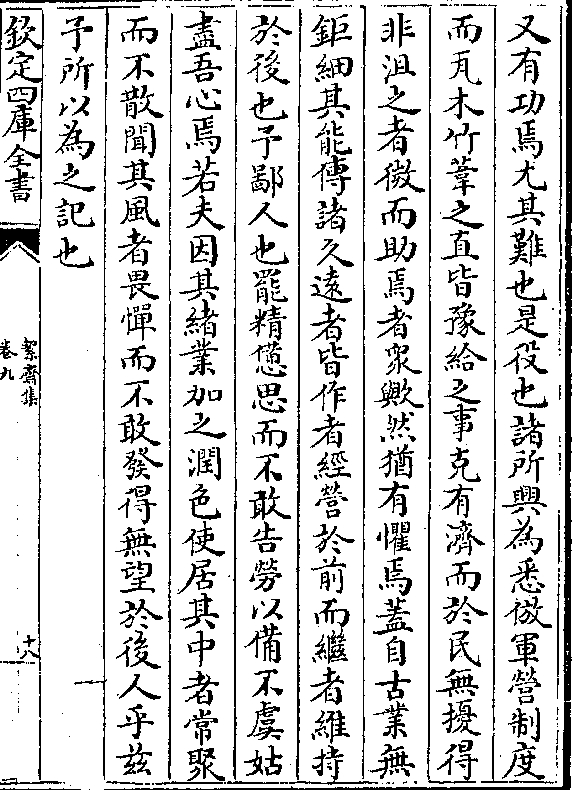 又有功焉尤其難也是役也諸所興為悉倣軍營制度
而瓦木竹葦之直皆豫給之事克有濟而於民無擾得
非沮之者微而助焉者衆歟然猶有懼焉蓋自古業無
鉅細其能傳諸久遠者皆作者經營於前而繼者維持
於後也予鄙人也罷精憊思而不敢告勞以備不虞姑
盡吾心焉若夫因其緒業加之潤色使居其中者常聚
而不散聞其風者畏憚而不敢發得無望於後人乎茲
予所以為之記也
欽定四庫全書
絜齋集
卷九
十八